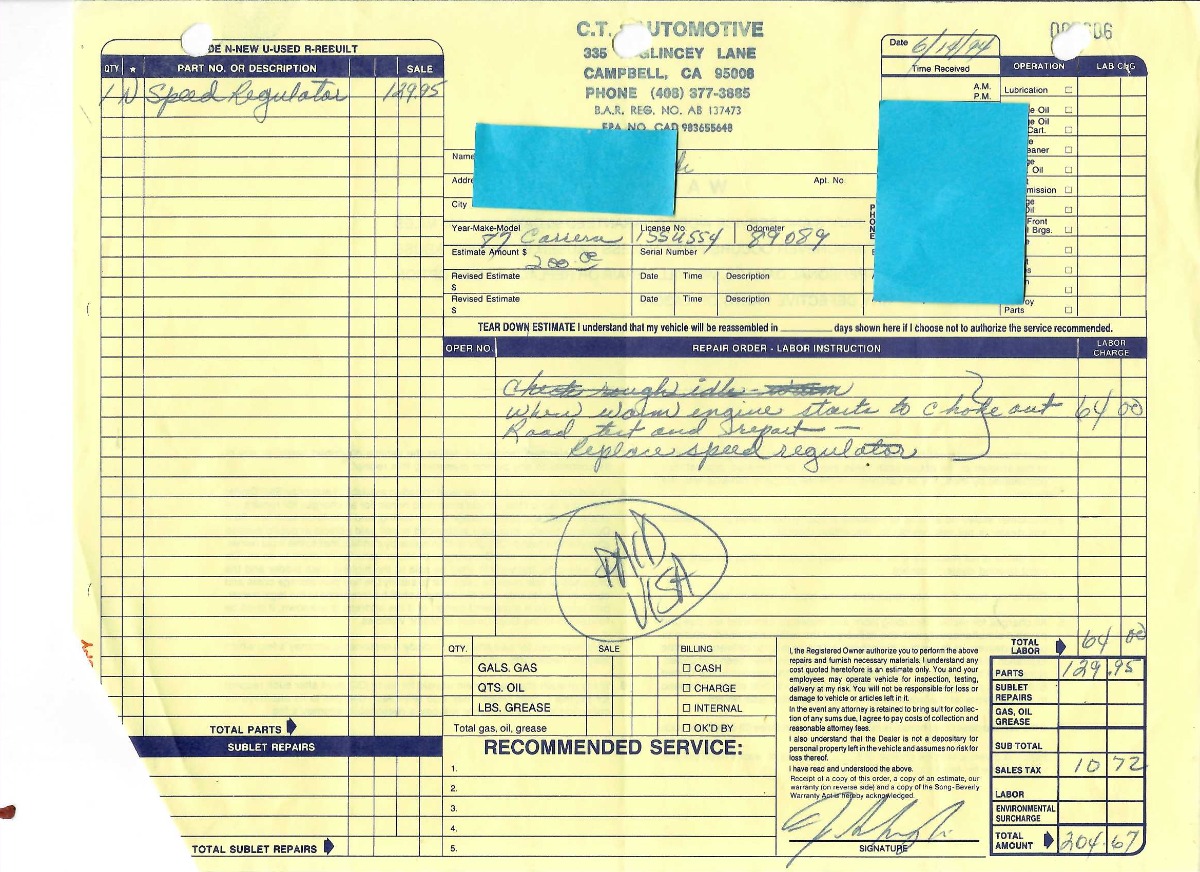 DE N-NEW U-USED R-REBUILT
QTY ★ PART NO. OR DESCRIPTION SALE
1 N Speed Regulator 129.95
TOTAL PARTS
SUBLET REPAIRS
TOTAL SUBLET REPAIRS
C.T. AUTOMOTIVE
335 GLINCEY LANE
CAMPBELL, CA 95008
PHONE (408) 377-3885
B.A.R. REG. NO. AB 137473
EPA NO. CAD 983655648
Date 6/14/94
Time Received
A.M.
P.M.
OPERATION LAB CHG
Lubrication
e Oil
ge Oil
Cart.
eaner
ge
Oil
t
mission
ge
Oil
Front
Brgs.
Parts
Name
Addre
Apt. No.
City
PHONE
Year-Make-Model License No. Odometer
87 Carrera 1SSU554 89089
Estimate Amount $ Serial Number
200.00
Revised Estimate Date Time Description
$
Revised Estimate Date Time Description
$
TEAR DOWN ESTIMATE I understand that my vehicle will be reassembled in ________ days shown here if I choose not to authorize the service recommended.
OPER NO. REPAIR ORDER - LABOR INSTRUCTION LABOR CHARGE
Check rough idle - warm
when warm engine starts to choke out 64 00
Road test and repart —
Replace speed regulator
PAID
VISA
QTY. SALE BILLING
GALS. GAS CASH
QTS. OIL CHARGE
LBS. GREASE INTERNAL
Total gas, oil, grease OK'D BY
RECOMMENDED SERVICE:
1.
2.
3.
4.
5.
I, the Registered Owner authorize you to perform the above
repairs and furnish necessary materials. I understand any
cost quoted heretofore is an estimate only. You and your
employees may operate vehicle for inspection, testing,
delivery at my risk. You will not be responsible for loss or
damage to vehicle or articles left in it.
In the event any attorney is retained to bring suit for collec-
tion of any sums due, I agree to pay costs of collection and
reasonable attorney fees.
I also understand that the Dealer is not a depositary for
personal property left in the vehicle and assumes no risk for
loss thereof.
I have read and understood the above.
Receipt of a copy of this order, a copy of an estimate, our
warranty (on reverse side) and a copy of the Song-Beverly
Warranty Act is hereby acknowledged.
SIGNATURE
TOTAL LABOR 64 00
PARTS 129.95
SUBLET REPAIRS
GAS, OIL GREASE
SUB TOTAL
SALES TAX 10 72
LABOR
ENVIRONMENTAL SURCHARGE
TOTAL AMOUNT 204.67